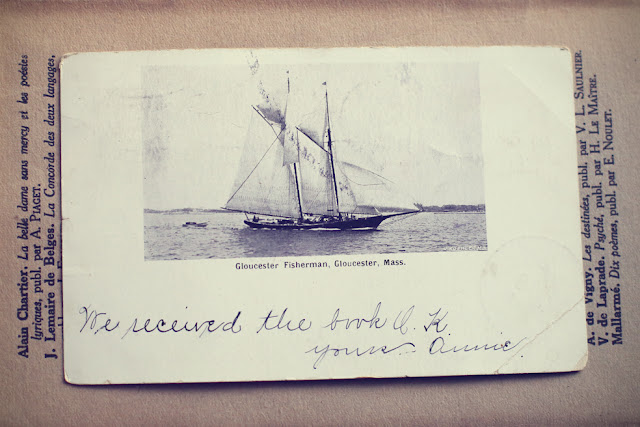 Alain Chartier. La belle dame sans mercy et les poésies
lyriques, publ. par A. PIAGET.
J. Lemaire de Belges. La Concorde des deux langages,
Gloucester Fisherman, Gloucester, Mass.
We received the book O.K.
yours Annie.
A. de Vigny. Les destinées, publ. par V. L. SAULNIER.
V. de Laprade. Psyché, publ. par H. LE MAÎTRE.
Mallarmé. Dix poèmes, publ. par E. NOULET.